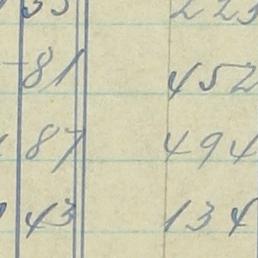 55 223
81 452
87 494
43 134